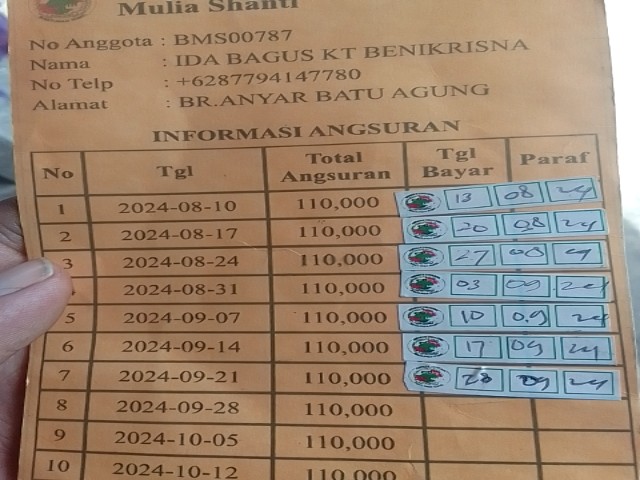 Mulia Shanti
No Anggota : BMS00787
Nama : IDA BAGUS KT BENIKRISNA
No Telp : +6287794147780
Alamat : BR.ANYAR BATU AGUNG
INFORMASI ANGSURAN
No Tgl Total Angsuran Tgl Bayar Paraf
1 2024-08-10 110,000 13 08 24
2 2024-08-17 110,000 20 08 24
3 2024-08-24 110,000 27 08
2024-08-31 110,000 03 09 24
5 2024-09-07 110,000 10 09 24
6 2024-09-14 110,000 17 09 24
7 2024-09-21 110,000 28 09 24
8 2024-09-28 110,000
9 2024-10-05 110,000
10 2024-10-12 110,000